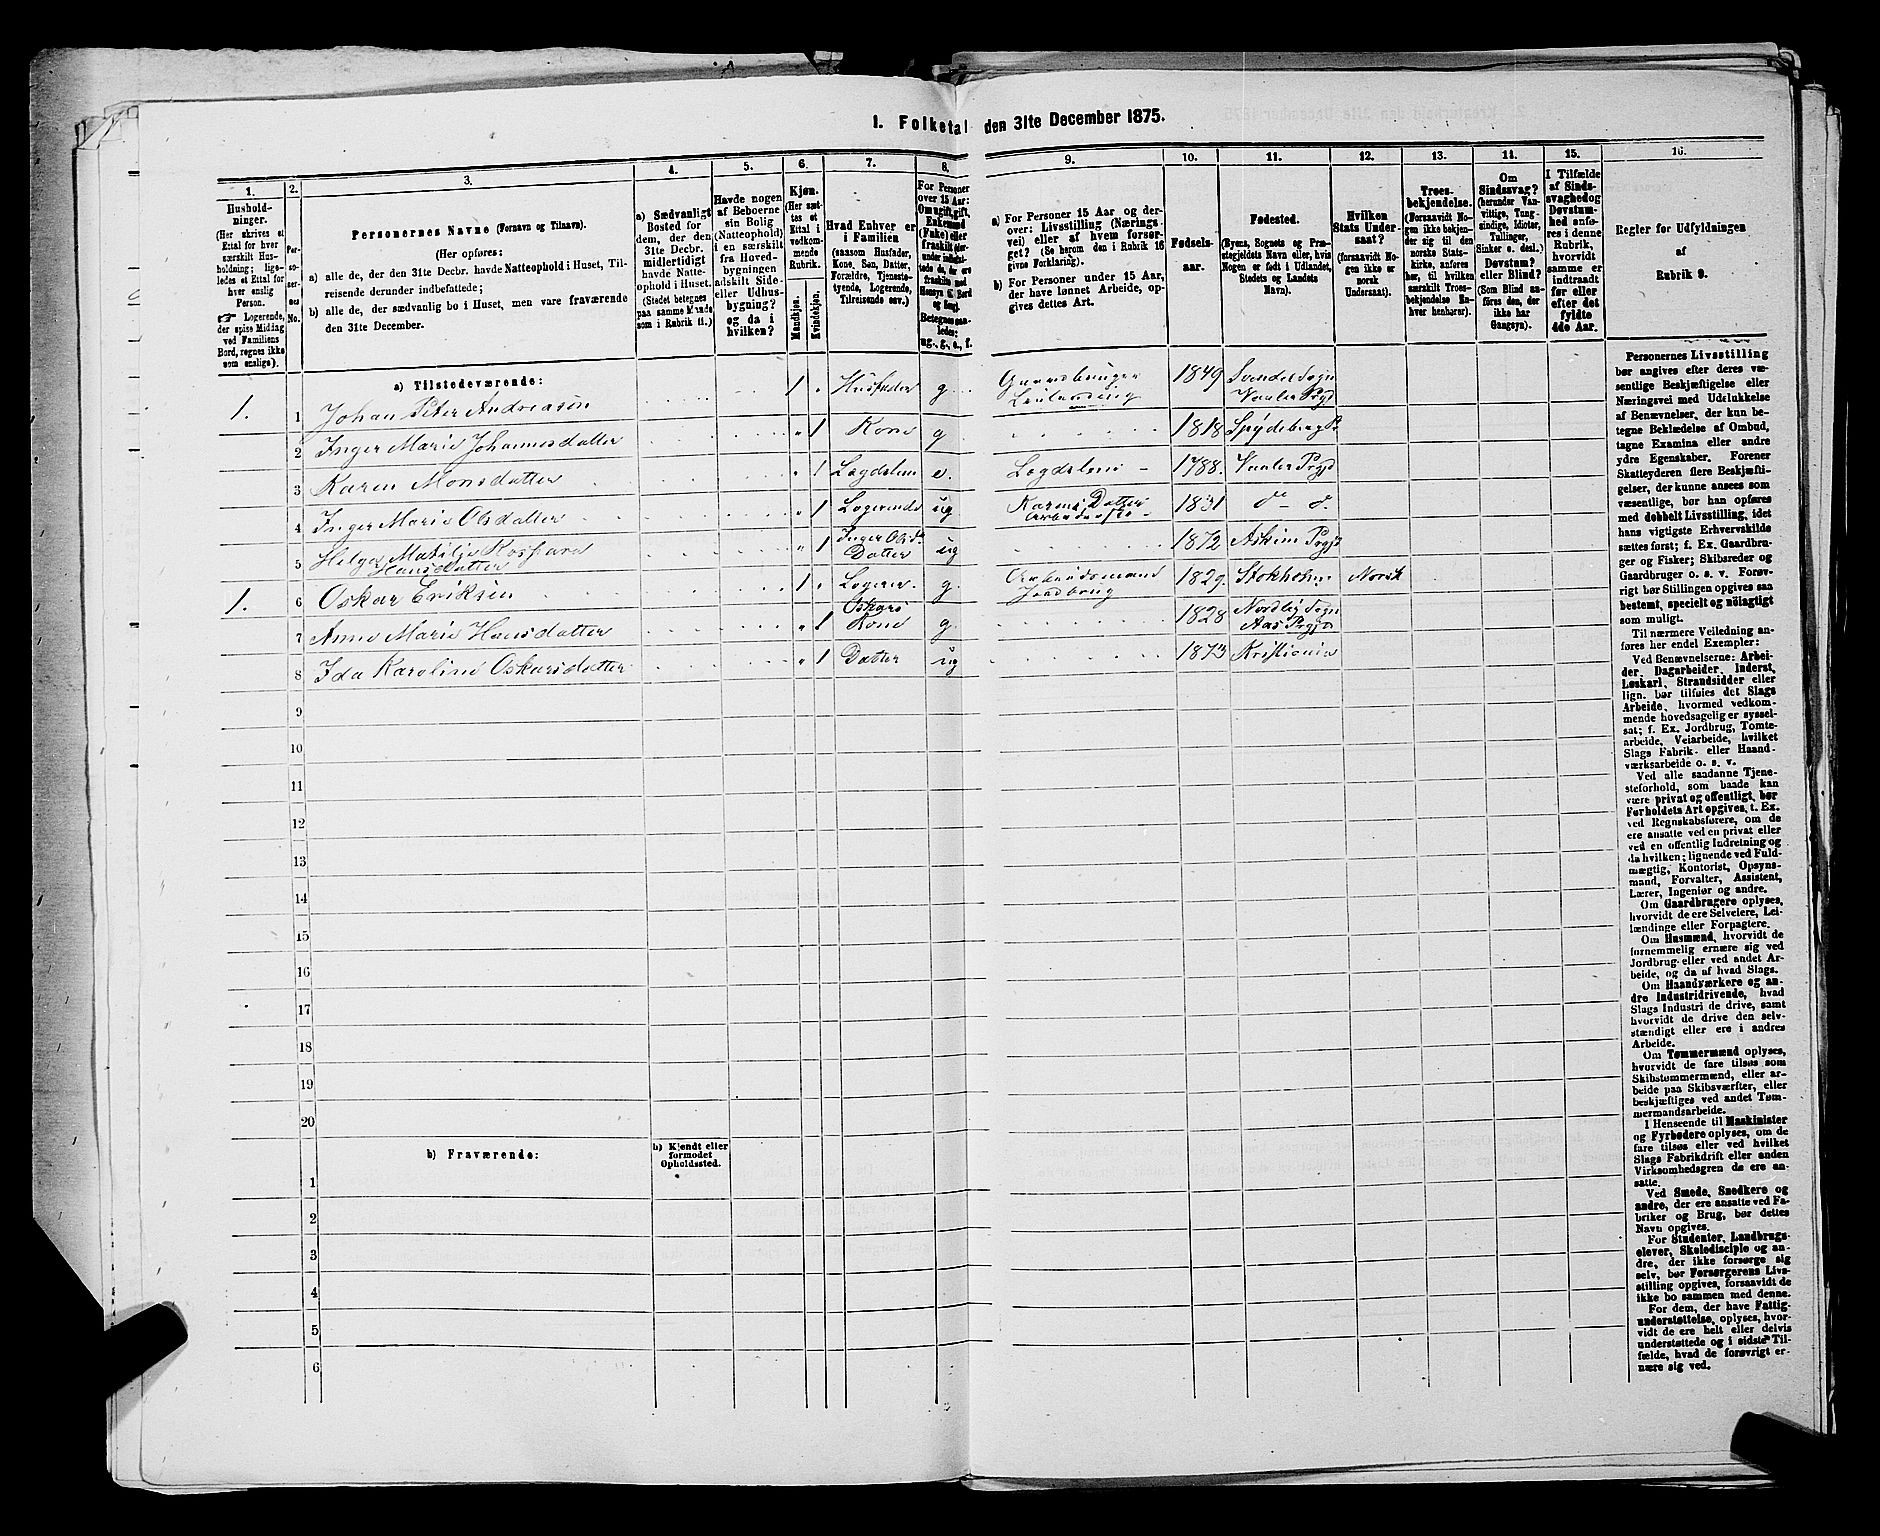 1. Folketal den 31te December 1875.
1.
Husholdninger.
(Her skrives et Ettal for hver særskilt Husholdning; ligeledes et Ettal for hver enslig Person.
☞ Logerende, der spise Middag ved Familiens Bord, regnes ikke som enslige).
2.
Personernes No.
3.
Personernes Navne (Fornavn og Tilnavn).
(Her opføres:
a) alle de, der den 31te Decbr. havde Natteophold i Huset, Tilreisende derunder indbefattede;
b) alle de, der sædvanlig bo i Huset, men vare fraværende den 31te December.
4.
a) Sædvanligt Bosted for dem, der den 31te Decbr. midlertidigt havde Natteophold i Huset.
(Stedet betegnes paa samme Maade som i Rubrik 11.)
5.
Havde nogen af Beboerne sin Bolig (Natteophold) i en særskilt fra Hovedbygningen adskilt Side- eller Udhusbygning? og da i hvilken?
6.
Kjøn.
(Her sættes et Ettal i vedkommende Rubrik.
Mandkjøn. Kvindekjøn.
7.
Hvad Enhver er i Familien
(saasom Husfader, Kone, Søn, Datter, Forældre, Tjenestetyende, Logerende, Tilreisende osv.)
8.
9.
a) For Personer 15 Aar og derover: Livsstilling (Næringsvei) eller af hvem forsørget? (Se herom den i Rubrik 16 givne Forklaring).
b) For Personer under 15 Aar, der have lønnet Arbeide, opgives dettes Art.
10.
Fødselsaar.
11.
Fødested.
(Byens, Sognets og Præstegjeldets Navn eller, hvis Nogen er født i Udlandet, Stedets og Landets Navn).
12.
Hvilken Stats Undersaat?
(forsaavidt Nogen ikke er norsk Undersaat).
13.
Troesbekjendelse.
(Forsaavidt Nogen ikke bekjender sig til den norske Statskirke, anføres her, til hvilken særskilt Troesbekjendelse Enhver henhører).
14.
Om Sindssvag? (herunder Vanvittige, Tungsindige, Idioter, Tullinger, Sinker o. desl.) Døvstum? eller Blind? (Som Blind anføres den, der ikke har Gangsyn).
15.
I Tilfælde af Sindssvaghed og Døvstumhed anføres i denne Rubrik, hvorvidt samme er indtraadt før eller efter det fyldte 4de Aar.
16.
Regler for Udfyldningen af Rubrik 9.
a) Tilstedeværende:
1. 1 Johan Peter Andreasen 1 Husfader g Gaardbruger Leilending 1849 Svindal Sogn Vaaler Prgjd
2 Inger Marie Johannesdatter 1 Kone g 1818 Spydeberg P.
3 Karen Monsdatter 1 Lægdslem e. Lægdslem 1788. Vaaler Prgjd
4 Inger Marie Olsdatter 1 Logerende ug Karens Datter 1831 do do
5 Helga Matilje Hansdatter 1 Inger Olsd. Datter ug 1872 Askim Prgjd
1. 6 Oskar Eriksen 1 Logerer g. Arbeidsmand Jordbrug 1829. Stokholm Norsk
7 Anne Marie Hansdatter 1 Oskars Kone g. 1828 Nordby Sogn Aas Prgjd
8 Ida Karoline Oskarsdatter 1 Datter ug 1873 Kristiania
9
10
11
12
13
14
15
16
17
18
19
20
b) Fraværende:
b) Kjendt eller formodet Opholdssted.
1
2
3
4
5
6
Personernes Livsstilling
bør angives efter deres væsentlige Beskjæftigelse eller
Næringsvei med Udelukkelse
af Benævnelser, der kun betegne Beklædelse af Ombud,
tagne Examina eller andre
ydre Egenskaber. Forener
Skatteyderen flere Beskjæftigelser, der kunne ansees som
væsentlige, bør han opføres
med dobbelt Livsstilling, idet
hans vigtigste Erhvervskilde
sættes først; f. Ex. Gaardbruger og Fisker; Skibsreder og
Gaardbruger o. s. v. Forøvrigt bør Stillingen opgives saa
bestemt, specielt og nøiagtigt
som muligt.
Til nærmere Veiledning anføres her endel Exempler:
Ved Benævnelserne: Arbeider, Dagarbeider, Inderst,
Løskarl, Strandsidder eller
lign. bør tilføies det Slags
Arbeide, hvormed vedkommende hovedsagelig er sysselsat; f. Ex. Jordbrug, Tomtearbeide, Veiarbeide, hvilket
Slags Fabrik- eller Haandværksarbeide o. s. v.
Ved alle saadanne Tjenesteforhold, som baade kan
være privat og offentligt, bør
Forholdets Art opgives, t. Ex.
ved Regnskabsførere, om de
ere ansatte ved en privat eller
ved en offentlig Indretning og
da hvilken; lignende ved Fuldmægtig, Kontorist, Opsynsmand, Forvalter, Assistent,
Lærer, Ingeniør og andre.
Om Gaardbrugere oplyses,
hvorvidt de ere Selveiere, Leilændinge eller Forpagtere.
Om Husmænd, hvorvidt de
fornemmelig ernære sig ved
Jordbrug eller ved andet Arbeide, og da af hvad Slags.
Om Haandværkere og andre Industridrivende, hvad
Slags Industri de drive, samt
hvorvidt de drive den selvstændigt eller ere i andres
Arbeide.
Om Tømmermænd oplyses,
hvorvidt de fare tilsøs som
Skibstømmermænd, eller arbeide paa Skibsværfter, eller
beskjæftiges ved andet Tømmermandsarbeide.
I Henseende til Maskinister
og Fyrbødere oplyses, om de
fare tilsøs eller ved hvilket
Slags Fabrikdrift eller anden
Virksomhedsgren de ere ansatte.
Ved Smede, Snedkere og
andre, der ere ansatte ved Fabriker og Brug, bør dettes
Navn opgives.
For Studenter, Landbrugselever, Skoledisciple og andre, der ikke forsørge sig
selv, bør Forsørgerens Livsstilling opgives, forsaavidt de
ikke bo sammen med denne.
For dem, der have Fattigunderstøttelse, oplyses, hvorvidt de ere helt eller delvis
understøttede og i sidste Tilfælde, hvad de forøvrigt ernære sig ved.